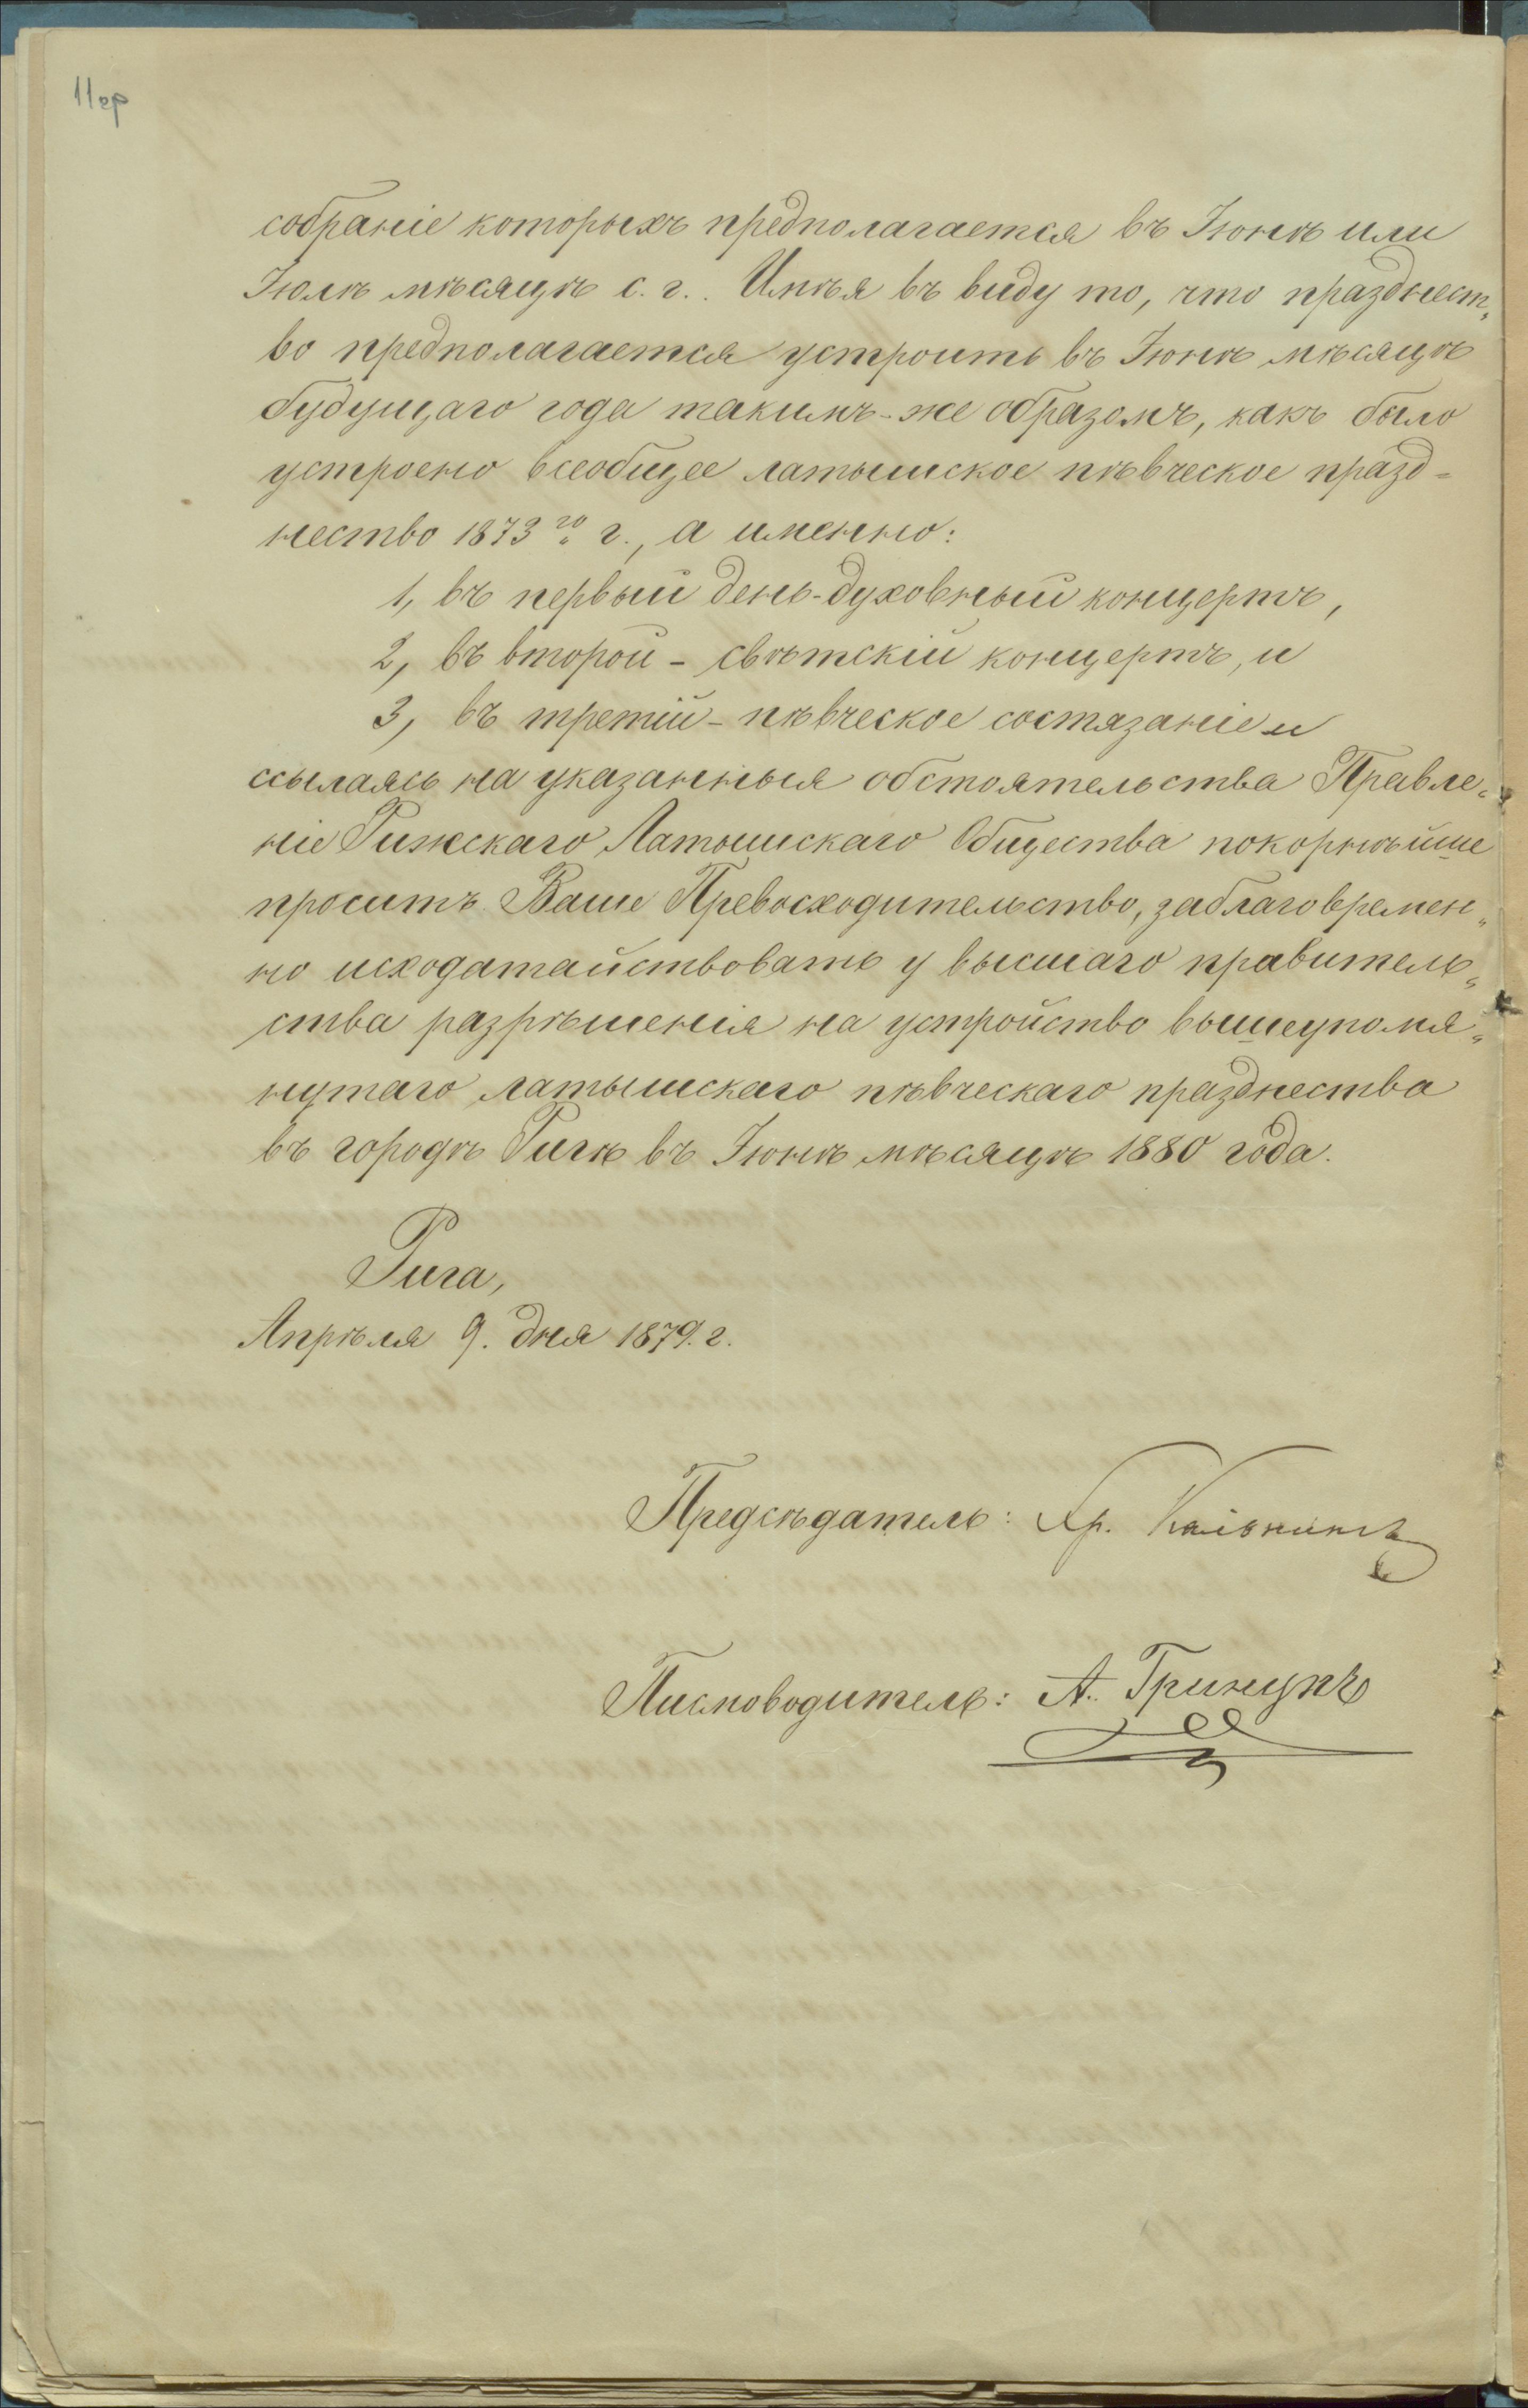 11 ор
собраніе которыхъ предполагается въ Іюнѣ или
Іюлѣ мѣсяцѣ с. г.. Имѣя въ виду то, что празднест„
во предполагается устроить въ Іюнѣ мѣсяцѣ
будущаго года такимъ-же образомъ, какъ было
устроено всеобщее латышское пѣвческое празд-
нество 1873го г., а именно:
1, въ первый день-духовный концертъ,
2, въ второй - свѣтскій концертъ, и
3, въ третій - пѣвческое состязаніе и
ссылаясь на указанныя обстоятельства Правле„
ніе Рижскаго Латышскаго Общества покорнѣйше
проситъ Ваше Превосходительство, заблаговремен„
но исходатайствовать у высшаго правитель„
ства разрѣшенія на устройство вышеупомя„
нутаго латышскаго пѣвческаго празднества
въ городѣ Ригѣ въ Іюнѣ мѣсяцѣ 1880 года.
Рига,
Апрѣля 9. дня 1879. г.
Предсѣдатель: Хр. Кальнинъ
Писмоводитель: А. Гринупъ